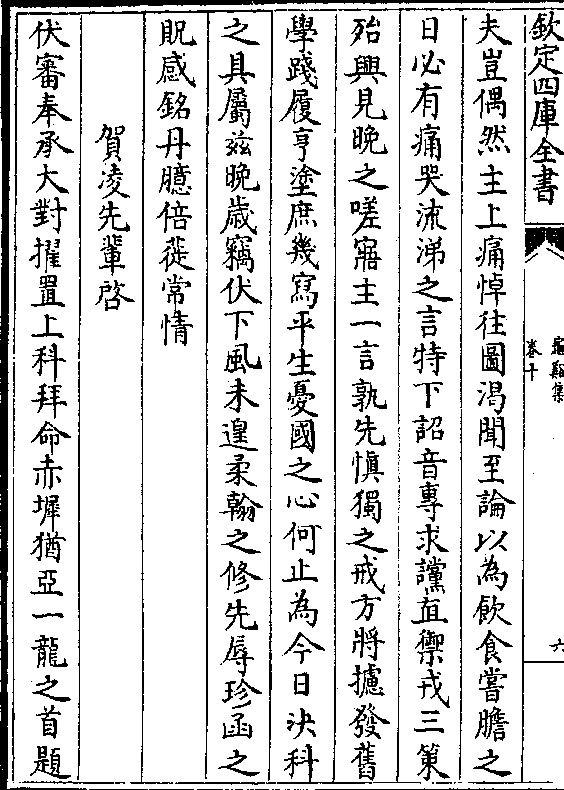 欽定四庫全書
龜谿集
卷十
六
夫豈偶然主上痛悼往圖渴聞至論以為飲食嘗膽之
日必有痛哭流涕之言特下詔音專求讜直禦戎三策
殆興見晚之嗟寤主一言孰先愼獨之戒方將攄發舊
學踐履亨塗庶幾寫平生憂國之心何止為今日決科
之具屬兹晚歳竊伏下風未遑柔翰之修先辱珍函之
貺感銘丹臆倍蓰常情
賀凌先輩啓
伏審奉承大對擢置上科拜命赤墀猶亞一龍之首題